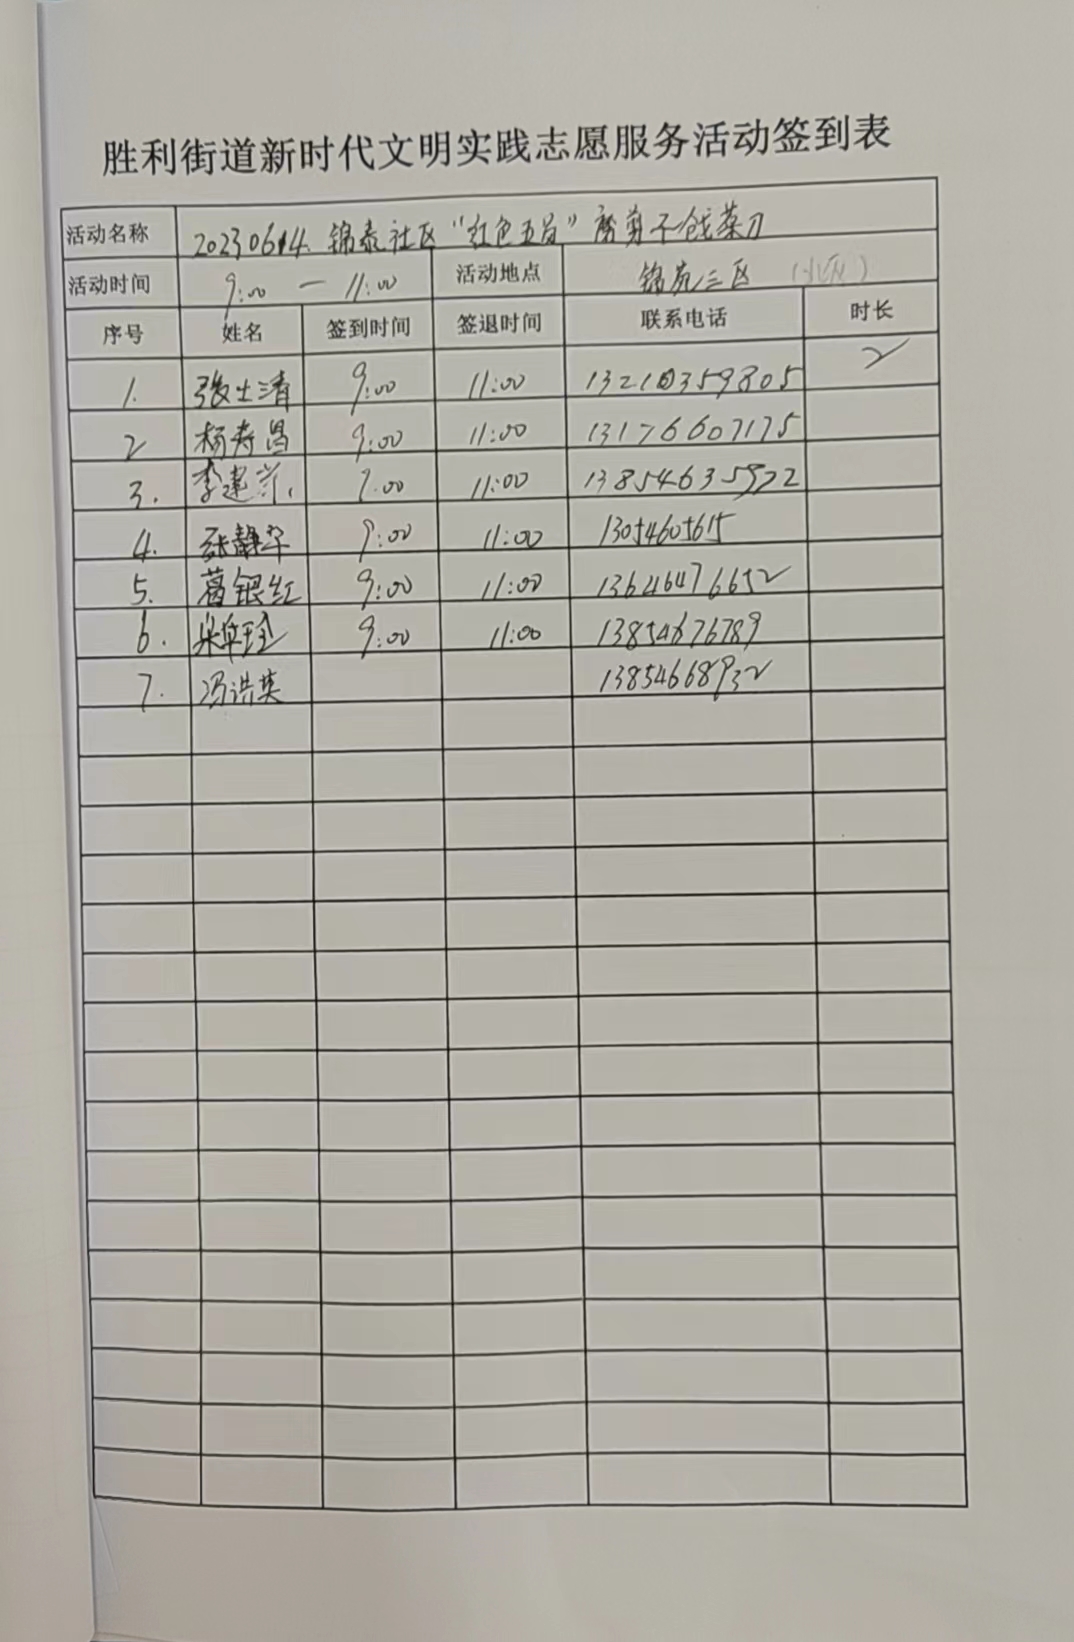 胜利街道新时代文明实践志愿服务活动签到表
活动名称 20230614 锦泰社区"红色五员"磨剪子戗菜刀
活动时间 9:00 — 11:00 活动地点 锦苑三区
序号 姓名 签到时间 签退时间 联系电话 时长
1. 张士清 9:00 11:00 13210359805 2
2 杨寿昌 9:00 11:00 13176607175
3. 李建 11:00 13854635922
4. 张静华 9:00 11:00 13054605615
5. 葛银红 9:00 11:00 13646476652
6. 9:00 11:00 13854676789
7. 冯洪英 13854668932